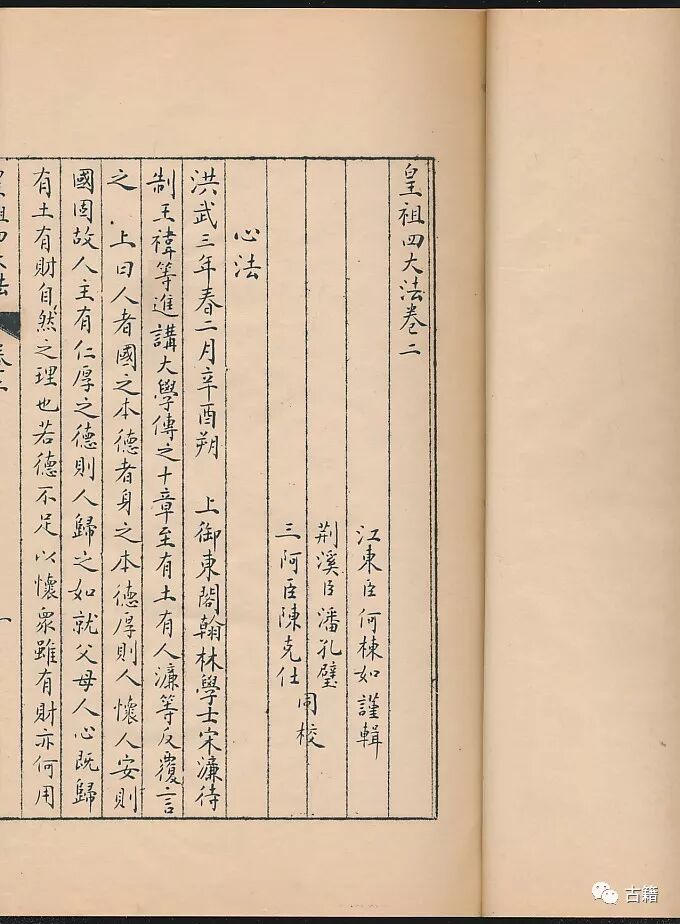 皇祖四大法卷二
江東臣何棟如謹輯
荆溪臣潘孔璧
三阿臣陳克仕
同校
心法
洪武三年春二月辛酉朔　上御東閣翰林學士宋濂待
制王禕等進講大學傳之十章至有土有人濂等反覆言
之　上曰人者國之本德者身之本德厚則人懷人安則
國固故人主有仁厚之德則人歸之如就父母人心既歸
有土有財自然之理也若德不足以懷眾雖有財亦何用
皇祖四大法
卷二
一
古籍